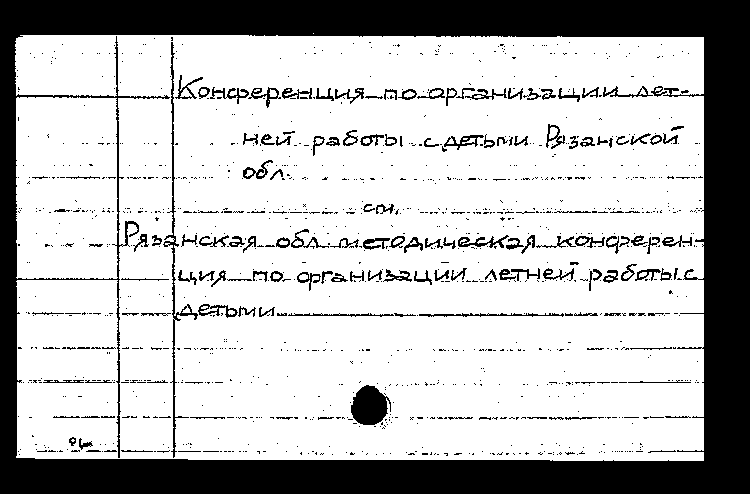 Конференция по организации лет-
ней работы с детьми Рязанской
обл.
см.
Рязанская обл. методическая конферен-
ция по организации летней работы с
детьми